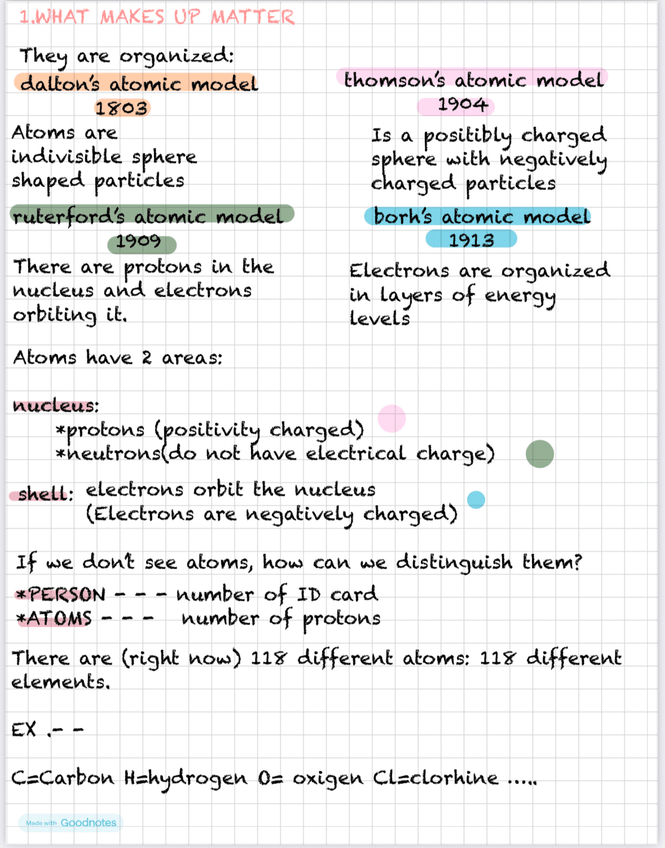 1.WHAT MAKES UP MATTER
They are organized:
dalton's atomic model
1803
Atoms are
indivisible sphere
shaped particles
thomson's atomic model
1904
Is a positibly charged
sphere with negatively
charged particles
ruterford's atomic model
1909
There are protons in the
nucleus and electrons
orbiting it.
borh's atomic model
1913
Electrons are organized
in layers of energy
levels
Atoms have 2 areas:
nucleus:
*protons (positivity charged)
*neutrons(do not have electrical charge)
shell: electrons orbit the nucleus
(Electrons are negatively charged)
If we don't see atoms, how can we distinguish them?
*PERSON - - - number of ID card
*ATOMS - - - number of protons
There are (right now) 118 different atoms: 118 different
elements.
EX .- -
C=Carbon H=hydrogen O= oxigen Cl=clorhine .....
Made with Goodnotes